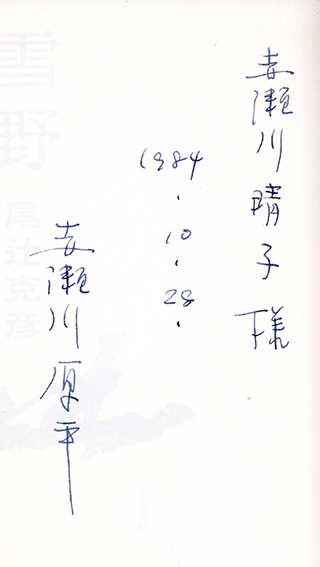 赤瀬川晴子様
1984.10.28.
赤瀬川原平
雪野
尾辻克彦